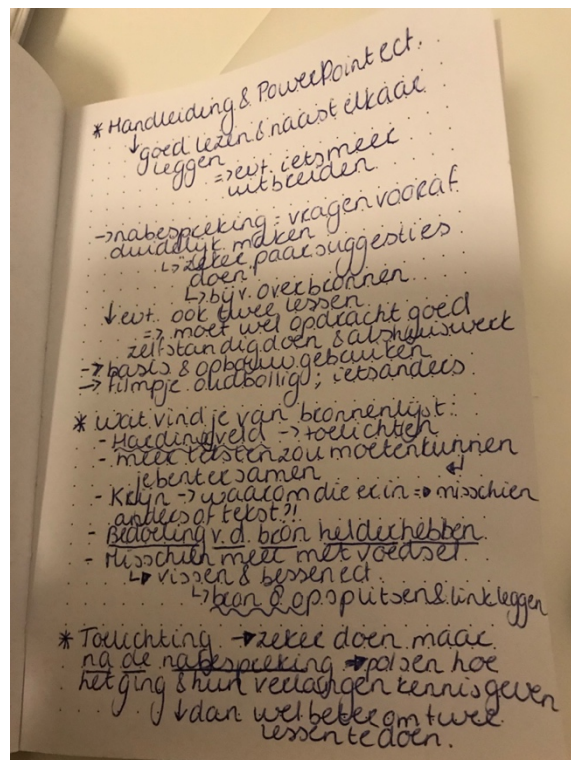 * Handleiding & PowerPoint ect.
↓ goed lezen & naast elkaar
leggen
=> evt. iets meer
uitbreiden
-> nabespreking = vragen vooraf
duidelijk maken
↳ zeker paar suggesties
doen!
↳ bijv. over bronnen
↓ evt. ook twee lessen
=> moet wel opdracht goed
zelfstandig doen & als huiswerk
-> basis & opbouw gebruiken
-> filmpje oudbollig; iets anders
* wat vind je van bronnenlijst:
- Hardingveld -> toelichten
- meer teksten zou moeten kunnen
je bent er samen
- Krijn -> waarom die er in => misschien
anders of tekst?!
- Bedoeling v.d. bron helder hebben
- Misschien meer met voedsel
↳ vissen & bessen ect.
↳ bron 8 opsplitsen & link leggen
* Toelichting -> zeker doen maar
na de nabespreking -> polsen hoe
het ging & hun verlangen kennis geven
↓ dan wel beter om twee
lessen te doen.